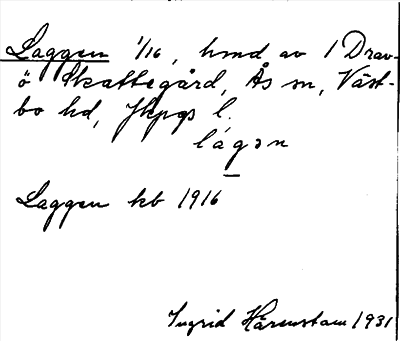 Laggen 1/16, hmd av 1 Drav-
ö Skattegård, Ås sn, Väst-
bo hd, Jkpgs l.
lágən
Laggen kb 1916
Ingrid Hårenstam 1931